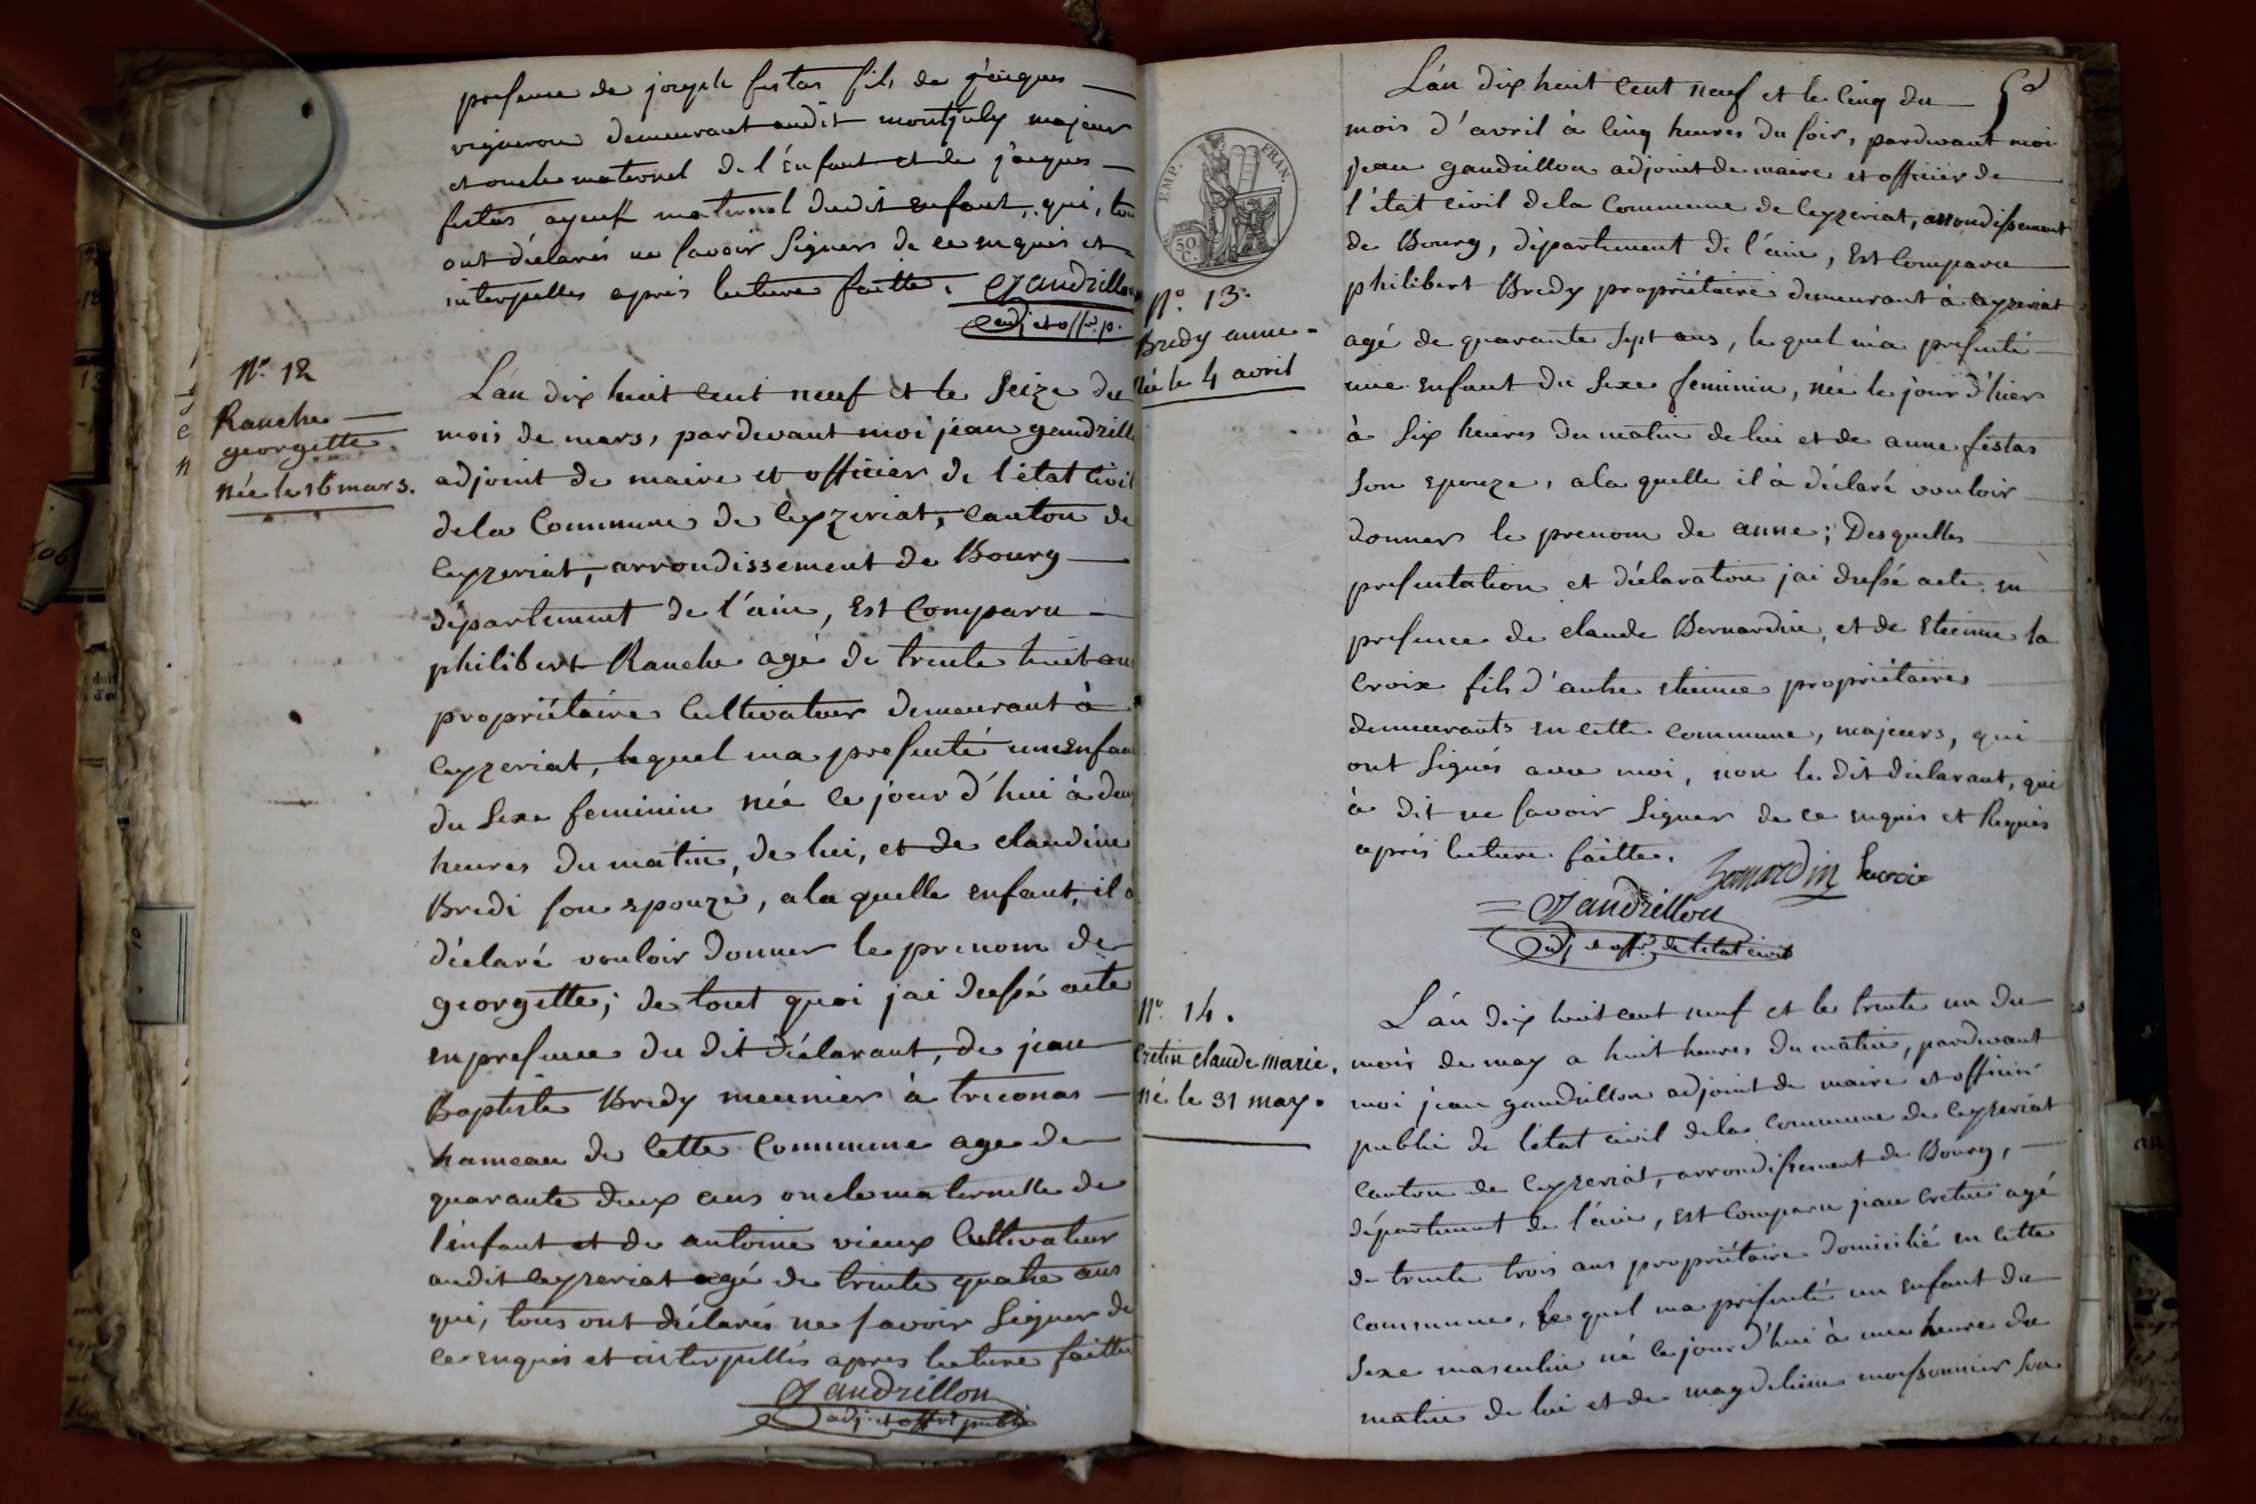 presence de joseph festas fils de jacques
vigneron demeurant audit montjuly majeur
et oncle maternel de l'enfant et de jacques
festas ayeuk maternel dudit enfant, qui, tou
ont déclarés ne savoir signer de ce enquis et
interpelles apres lecture faitte. Gaudrillon
adj et offr. p.
N.º 12
Ranche
georgette
née le 16 mars.
L'án dix huit cent neuf et le seize du
mois de mars, pardevant moi jean gaudrill
adjoint de maire et officier de l'état civil
de la Commune de Ceyzeriat, canton de
Ceyzeriat, arrondissement de Bourg
département de l'ain, Est Comparu
philibert Ranche agé de trente huit an
propriétaire Cultivateur demeurant à
Ceyzeriat, lequel ma presenté une enfan
du sexe feminin née ce jour d'hui à deu
heures du matin, de lui, et de claudine
Bredi son epouze, a la quelle enfant, il a
déclaré vouloir donner le prenom de
georgette; de tout quoi jai dressé acte
en presence du dit déclarant, de jean
Baptiste Bredy meunier à treconas
hameau de Cette Commune age de
quarante deux ans oncle maternelle de
l'enfant et de antoine vieux Cultivateur
audit Ceyzeriat agé de trente quatre ans
qui, tous ont déclarés ne savoir signer de
ce enquis et interpellés apres lecture faitte
Gaudrillon
adj. et offr public
5
EMP. FRAN.
50 C.
N.º 13.
Bredy anne
née le 4 avril
L'án dix huit Cent neuf et le Cinq du
mois d'avril à Cinq heures du soir, pardevant moi
jean gaudrillon adjoint de maire et officier de
l'état civil de la Commune de Ceyzeriat, arrondissement
de Bourg, département de l'ain, Est Comparu
philibert Bredy propriétaire demeurant à Ceyzeriat
agé de quarante sept ans, le quel m'a presenté
une enfant du sexe feminin, née le jour d'hier
à six heures du matin de lui et de anne festas
son epouze, a la quelle il à déclaré vouloir
donner le prenom de anne; Desquelles
presentation et déclaration jai dressé acte en
presence de claude Bernardin, et de Etienne la
Croix fils d'autre etienne propriétaires
demeurants en cette commune, majeurs, qui
ont signés avec moi, non le dit déclarant, qui
à dit ne savoir signer de ce enquis et Requis
après lecture faitte.
Bernardin Lacroix
Gaudrillon
adj et offr. de l'etat civil
N.º 14.
Cretin claude marie,
né le 31 may.
L'án dix huit cent neuf et le trente un du
mois de may a huit heures du matin, pardevant
moi jean gaudrillon adjoint de maire et officier
public de l'état civil de la Commune de Ceyzeriat
Canton de Ceyzeriat, arrondissement de Bourg,
département de l'ain, est Comparu jean Cretin agé
de trente trois ans propriétaire domicilié en cette
commune, le quel ma presenté un enfant du
sexe masculin né ce jour d'hui à une heure du
matin de lui et de magdeleine moissonnier son